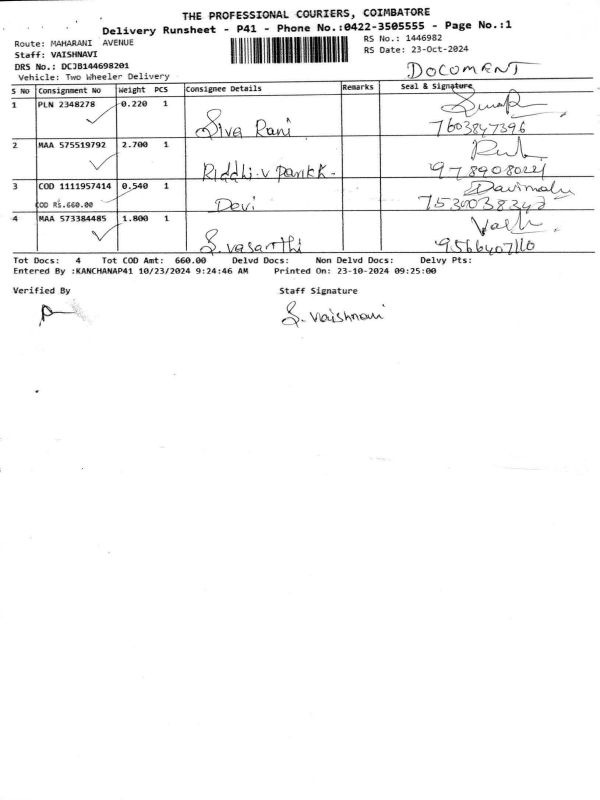 THE PROFESSIONAL COURIERS, COIMBATORE
Delivery Runsheet - P41 - Phone No.:0422-3505555 - Page No.:1
Route: MAHARANI AVENUE
RS No.: 1446982
Staff: VAISHNAVI
RS Date: 23-Oct-2024
DRS No.: DCJB144698201
DOCUMENT
Vehicle: Two Wheeler Delivery
S No Consignment No Weight PCS Consignee Details Remarks Seal & Signature
1 PLN 2348278 0.220 1
Siva Rani 7603847396
2 MAA 575519792 2.700 1
Riddhi.v Parikk. 9789080221
3 COD 1111957414 0.540 1
COD RS.660.00 Devi 7530038342
4 MAA 573384485 1.800 1
S. vasanthi 9566407110
Tot Docs: 4 Tot COD Amt: 660.00 Delvd Docs: Non Delvd Docs: Delvy Pts:
Entered By :KANCHANAP41 10/23/2024 9:24:46 AM Printed On: 23-10-2024 09:25:00
Verified By Staff Signature
S. Vaishnavi